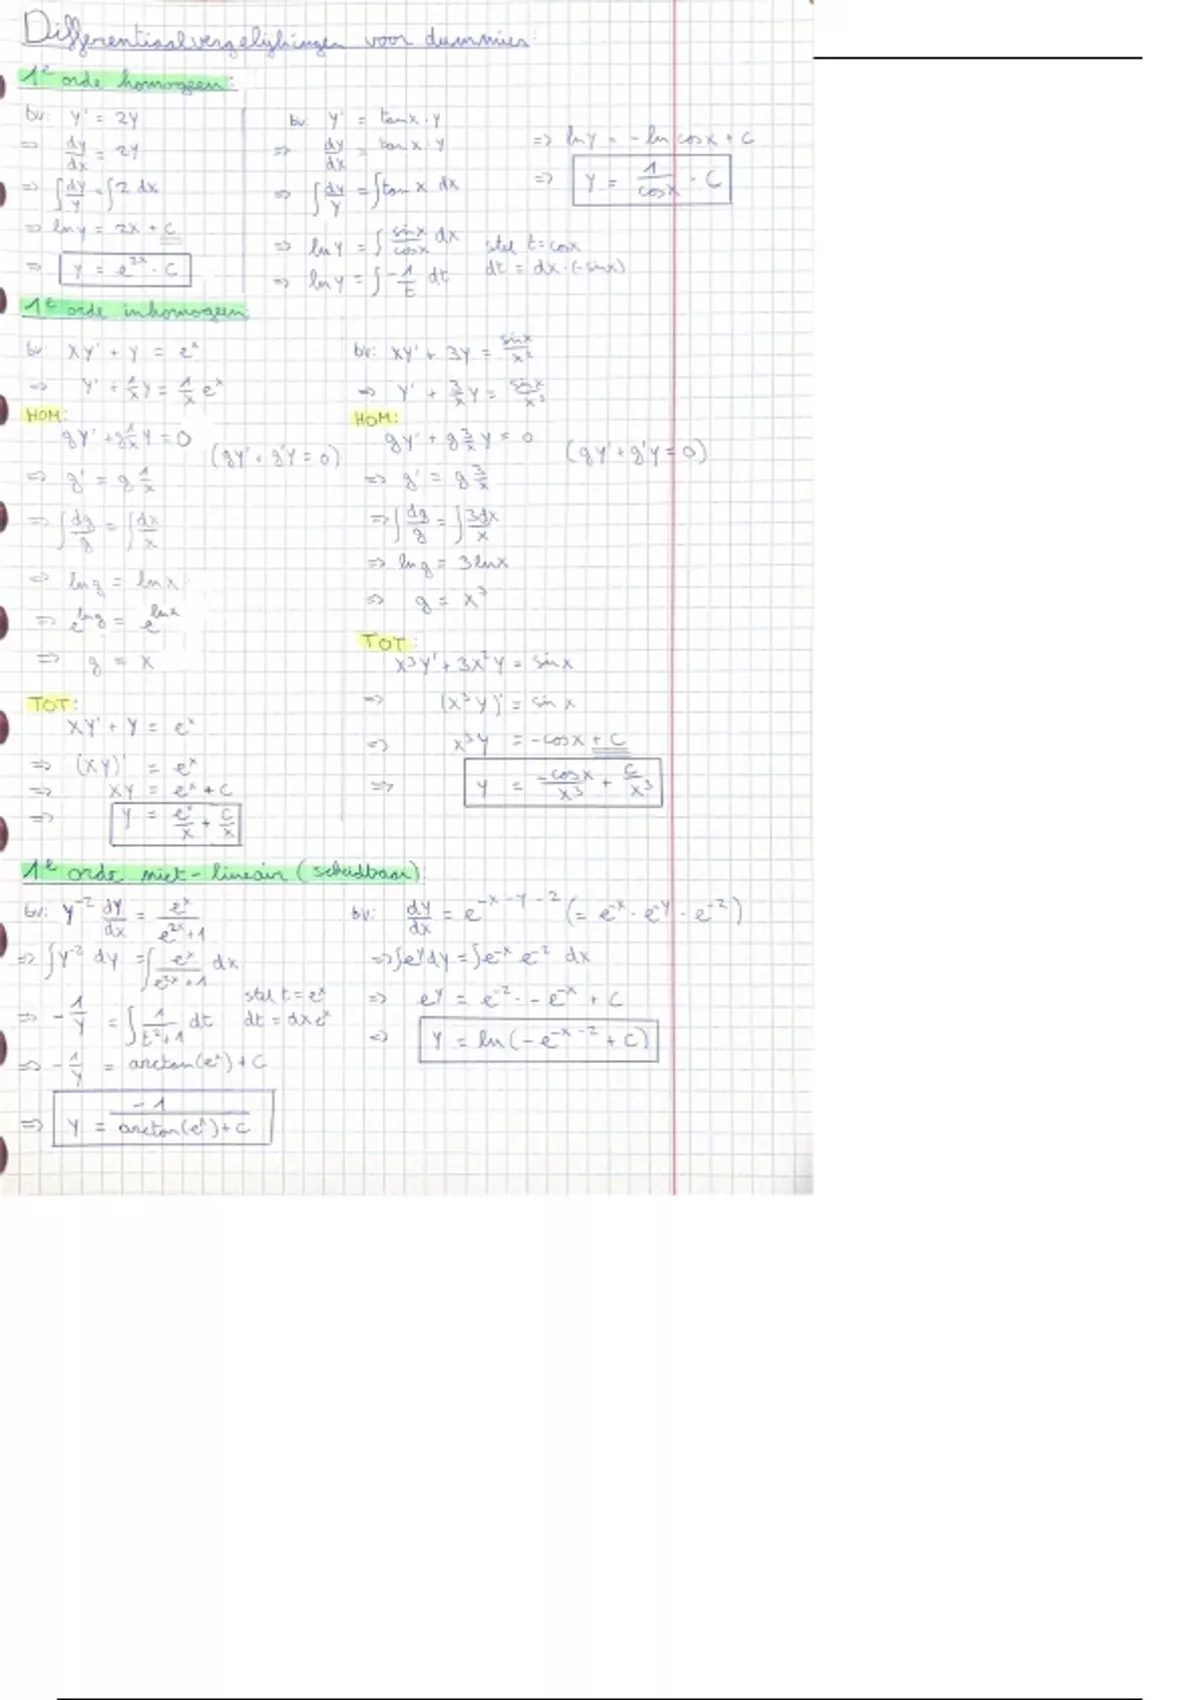 Differentiaalvergelijkingen voor dummies:
1e orde homogeen:
bv: y' = 2y
=> dy/dx = 2y
=> ∫ dy/y = ∫ 2 dx
=> ln y = 2x + C
=> y = e^2x · C
bv: y' = tan x · y
=> dy/dx = tan x · y
=> ∫ dy/y = ∫ tan x dx
=> ln y = ∫ sin x/cos x dx   stel t = cos x
=> ln y = ∫ -1/t dt   dt = dx · (-sin x)
=> ln y = - ln cos x + C
=> y = 1/cos x · C
1e orde inhomogeen
bv: xy' + y = e^x
=> y' + 1/x y = 1/x e^x
HOM:
gy' + g 1/x y = 0   (gy' + g'y = 0)
=> g' = g 1/x
=> ∫ dg/g = ∫ dx/x
=> ln g = ln x
=> e^ln g = e^ln x
=> g = x
TOT:
xy' + y = e^x
=> (xy)' = e^x
=> xy = e^x + C
=> y = e^x/x + C/x
bv: xy' + 3y = sin x/x^2
=> y' + 3/x y = sin x/x^3
HOM:
gy' + g 3/x y = 0   (gy' + g'y = 0)
=> g' = g 3/x
=> ∫ dg/g = ∫ 3dx/x
=> ln g = 3 ln x
=> g = x^3
TOT:
x^3 y' + 3x^2 y = sin x
=> (x^3 y)' = sin x
=> x^3 y = -cos x + C
=> y = -cos x/x^3 + C/x^3
1e orde niet-lineair (scheidbaar):
bv: y^-2 dy/dx = e^x/e^2x+1
=> ∫ y^-2 dy = ∫ e^x/e^2x+1 dx
=> -1/y = ∫ 1/t^2+1 dt   stel t = e^x   dt = dx e^x
=> -1/y = arctan(e^x) + C
=> y = -1/arctan(e^x)+C
bv: dy/dx = e^-x-y-2 (= e^-x · e^-y · e^-2)
=> ∫ e^y dy = ∫ e^-x e^-2 dx
=> e^y = e^-2 · - e^-x + C
=> y = ln(-e^-x-2 + C)